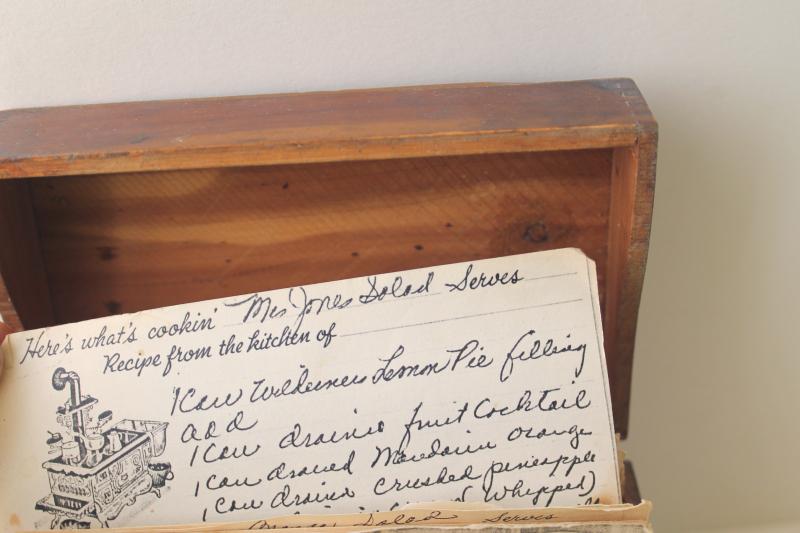 Here's what's cookin' Mrs Jones Salad Serves
Recipe from the kitchen of
1 Can Wilderness Lemon Pie filling
add
1 Can drained fruit Cocktail
1 can drained Mandarin orange
1 can drained crushed pineapple
whipped)
Salad Serves